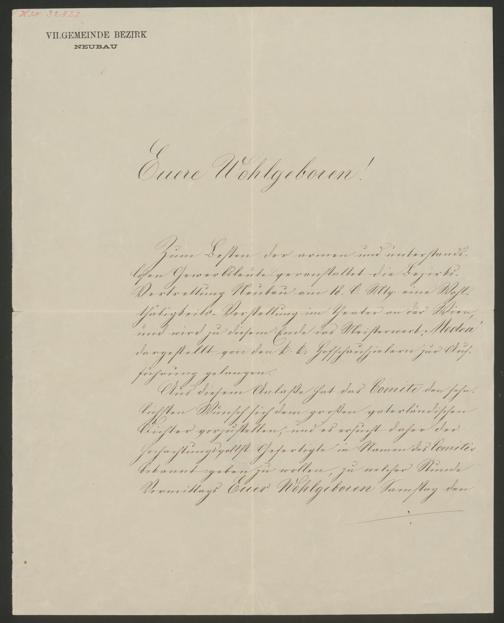 VII.GEMEINDE BEZIRK
NEUBAU
Euere Wohlgeboren!
Zum Besten der armen und unterstands-
losen Gewerbsleute veranstaltet die Bezirks-
Vertretung Neubau am d. Mts. eine Wohl-
thätigkeits-Vorstellung im Theater an der Wien,
und wird zu diesem Ende das Meisterwerk „Medea"
dargestellt von den k. k. Hofschauspielern zur Auf-
führung gelangen.
Aus diesem Anlaße hat das Comité den sehn-
lichsten Wunsch sich dem großen vaterländischen
Dichter vorzustellen, und es ersucht daher der
hochachtungsvollst Gefertigte im Namen des Comités
bekannt geben zu wollen, zu welcher Stunde
Vormittags Euer Wohlgeboren Samstag den